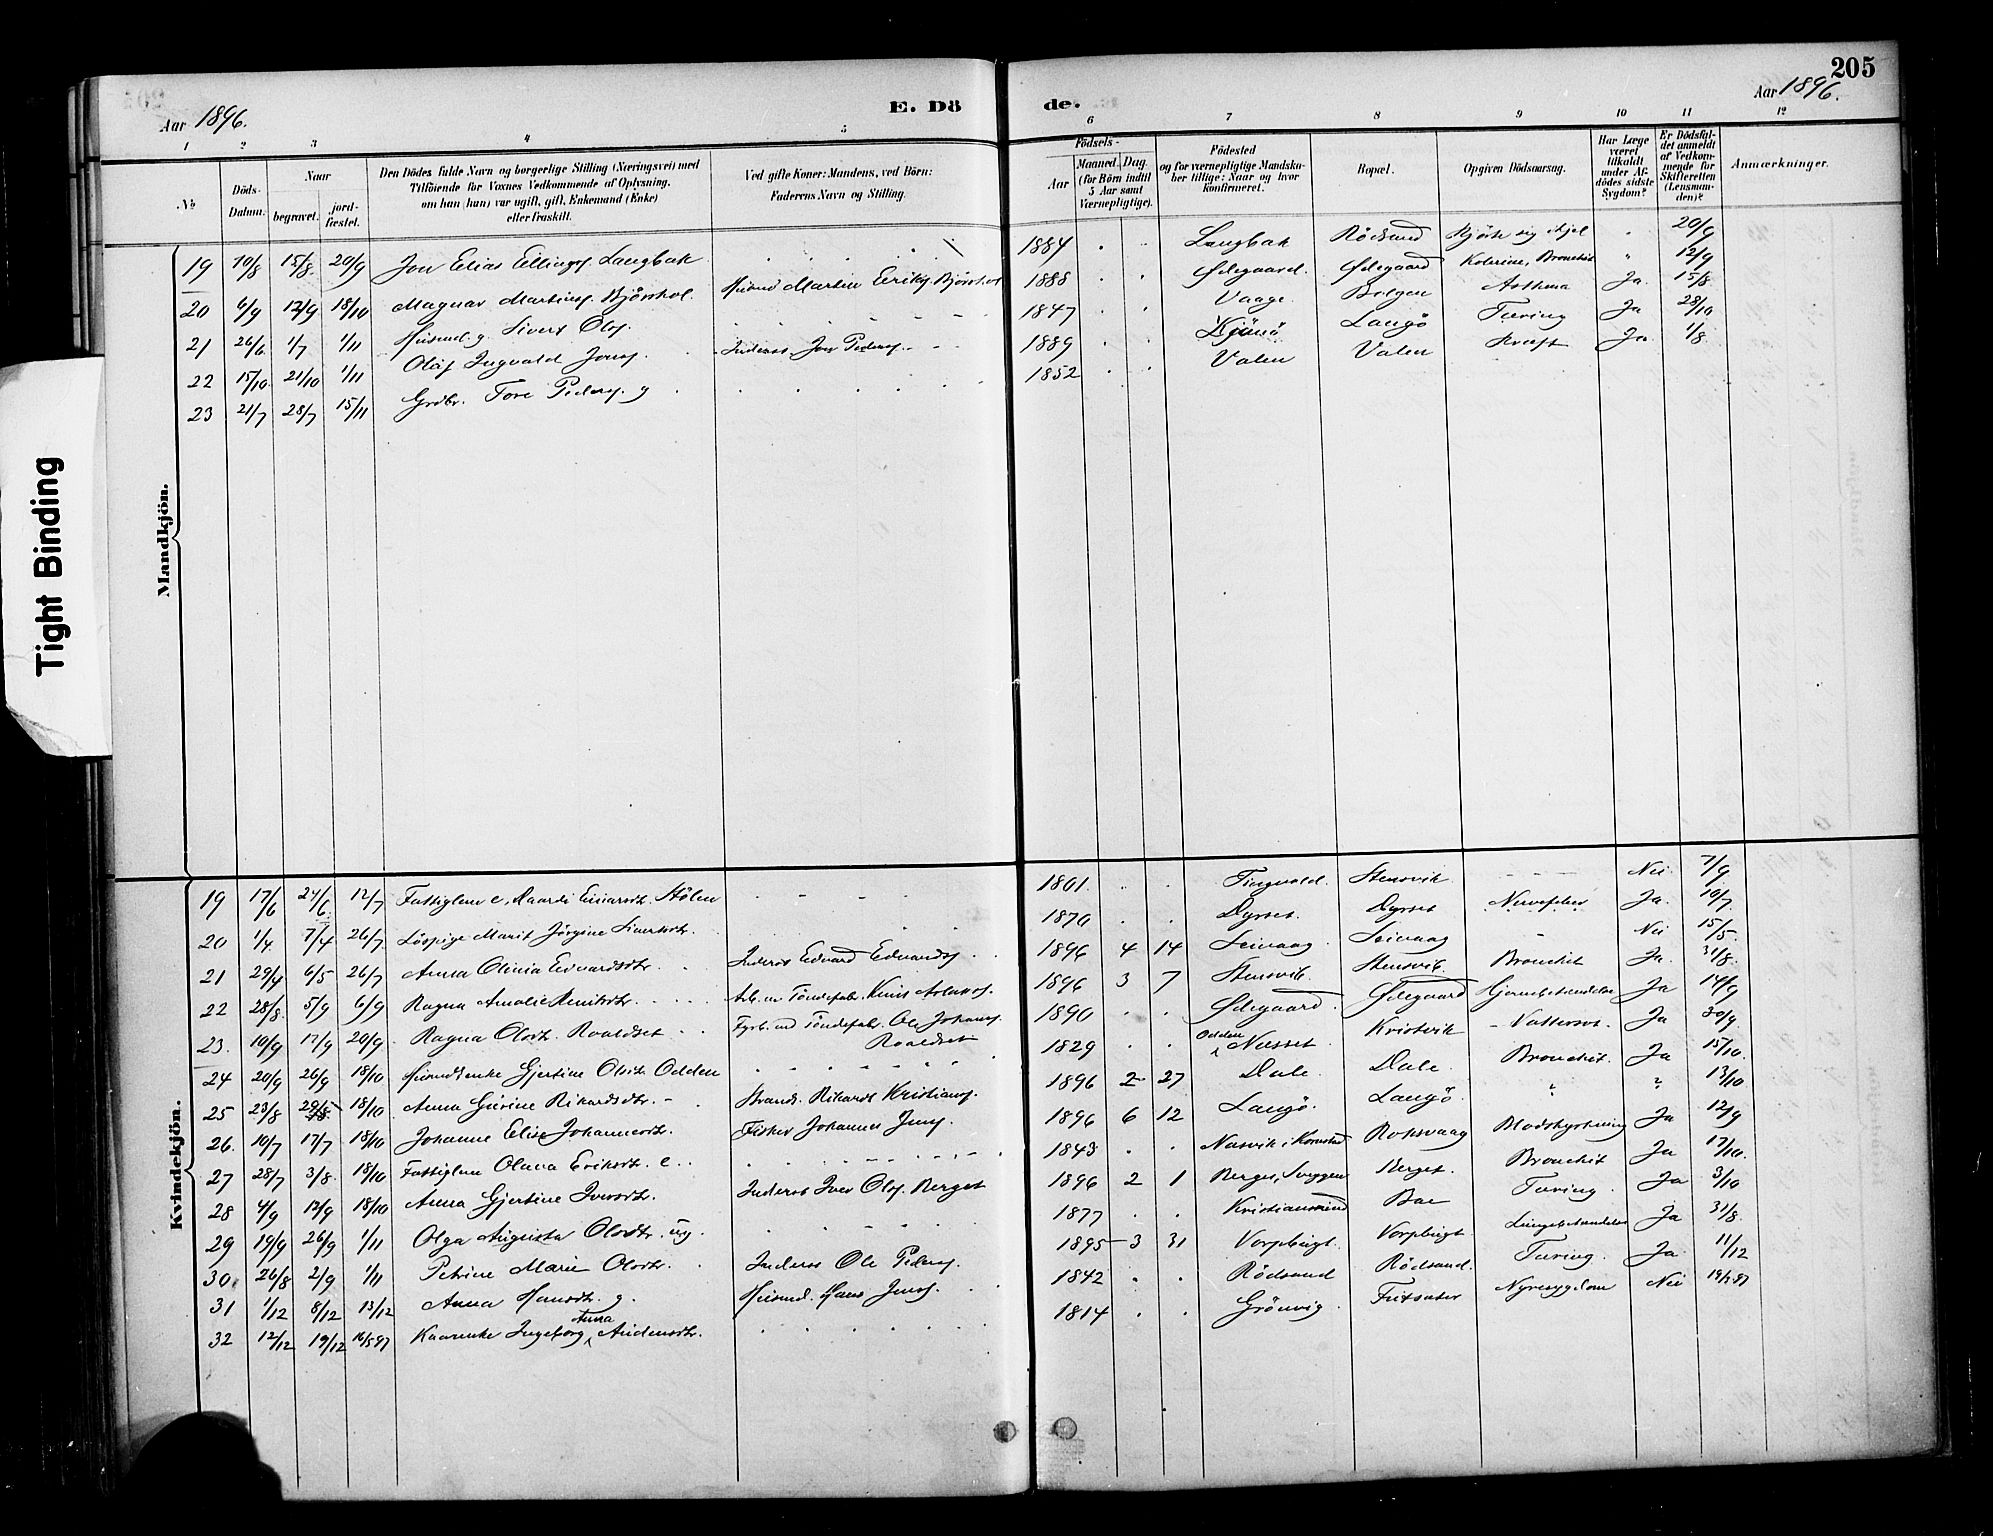 205
Aar 1896.
E. Dö
de.
Aar 1896.
1 2 3 4 5 6 7 8 9 10 11 12
№
Döds-
Datum.
Naar
begravet.
jord-
fæstet.
Den Dödes fulde Navn og borgerlige Stilling (Næringsvei) med
Tilföiende for Voxnes Vedkommende af Oplysning,
om han (hun) var ugift, gift, Enkemand (Enke)
eller fraskilt.
Ved gifte Koner: Mandens, ved Börn:
Faderens Navn og Stilling.
Födsels-
Aar
Maaned. Dag.
(for Börn indtil
5 Aar samt
Værnepligtige).
Födested
og for værnepligtige Mandska-
ber tillige: Naar og hvor
konfirmeret.
Bopæl.
Opgiven Dödsaarsag.
Har Læge
været
tilkaldt
under Af-
dödes sidste
Sygdom?
Er Dödsfal-
det anmeldt
af Vedkom-
mende for
Skifteretten
(Lensman-
den)?
Anmærkninger.
Mandkjön.
19 10/8 15/8 20/9 Jon Elias Ellingss. Langbak 1884 Langbak Rödsand 20/9
20 6/9 12/9 18/10 Magnar Martinss. Bjørshol. Husmd Martin Eriks. Bjørshol 1888 Ødegaard. Ødegaard Bronchit 12/9
21 26/6 1/7 1/11 Husmd. g. Sivert Ols. 1847 Vaage. Bolgen Asthma Ja 15/8
22 15/10 21/10 1/11 Olaf Ingvald Jons. Inderst Jon Peders. 1889 Langö Tæring Ja 28/10
23 21/7 28/7 15/11 Grdbr. Tore Peders. g 1852 Valen Valen Kræft Ja 1/8
Kvindekjön.
19 17/6 24/6 12/7 Fattiglem e. Stölen 1801 Tingvold. Stensvik Nei 7/9
20 1/4 7/4 26/7 Marit Jörgine Sivertsdtr. 1870 Dyrset. Dyrset Nervefeber Ja 10/7
21 29/4 6/5 26/7 Anna Olivia Edvardsdtr. Inderst Edvard Edvards. 1896 4 14 Leivaag Leivaag Nei 15/5
22 28/8 5/9 6/9 Ragna Amalie Arb. ved Töndefabr. Knut Aslaks. 1896 3 7 Stensvik. Stensvik. Bronchit Ja 31/8
23. 10/9 17/9 20/9 Ragna Olsdtr. Roaldset Fyrb. ved Töndefab. Ole Johans. Roaldset 1890 Ødegaard Ødegaard Hjernebetændelse Ja 14/9
24 20/9 26/9 18/10 Husmdsenke Gjertine Olsdtr. Odden 1829 Odden Næsset. Kristvik Vattersot. Ja 30/9
25 23/8 29/8 18/10 Anna Gurine Rikardsdtr. Strands. Rikard Kristians. 1896 2 27 Dale. Dale. Bronchit. Ja 15/10
26. 10/7 17/7 18/10 Johanne Elise Johannesdtr. Fisker Johannes Jens. 1896 6 12 Langö. Langö. " " 13/10
27 28/7 3/8 18/10 Fattiglem Olava Eriksdtr. e. 1843 Nasvik i Kornstad Roksvaag Blodstyrtning Ja 12/9
28 4/9 12/9 18/10 Anna Gjertine Iversdtr. Inderst Iver Ols. Berget 1896 2 1 Berget, Sveggen Berget. Bronchit Ja 17/10
29 19/9 26/9 1/11 Olga Augusta Olsdtr. ug. 1877 Kristiansund Bae Tæring. Ja 3/10
30 26/8 2/9 1/11 Petrine Marie Olsdtr. Inderst Ole Peders. 1895 3 31 Vorpbugt. Vorpbugt Lungebetændelse Ja 31/8
31 1/12 8/12 13/12 Anna Hansdtr. g. Husmd. Hans Jens. 1842 Rödsand Rödsand. Tæring. Ja 11/12
32 12/12 19/12 16/5 97 Kaarenke Ingeborg Anna Andersdtr. 1814 Grönvig. Futsæter Nyresygdom Nei
Tight Binding